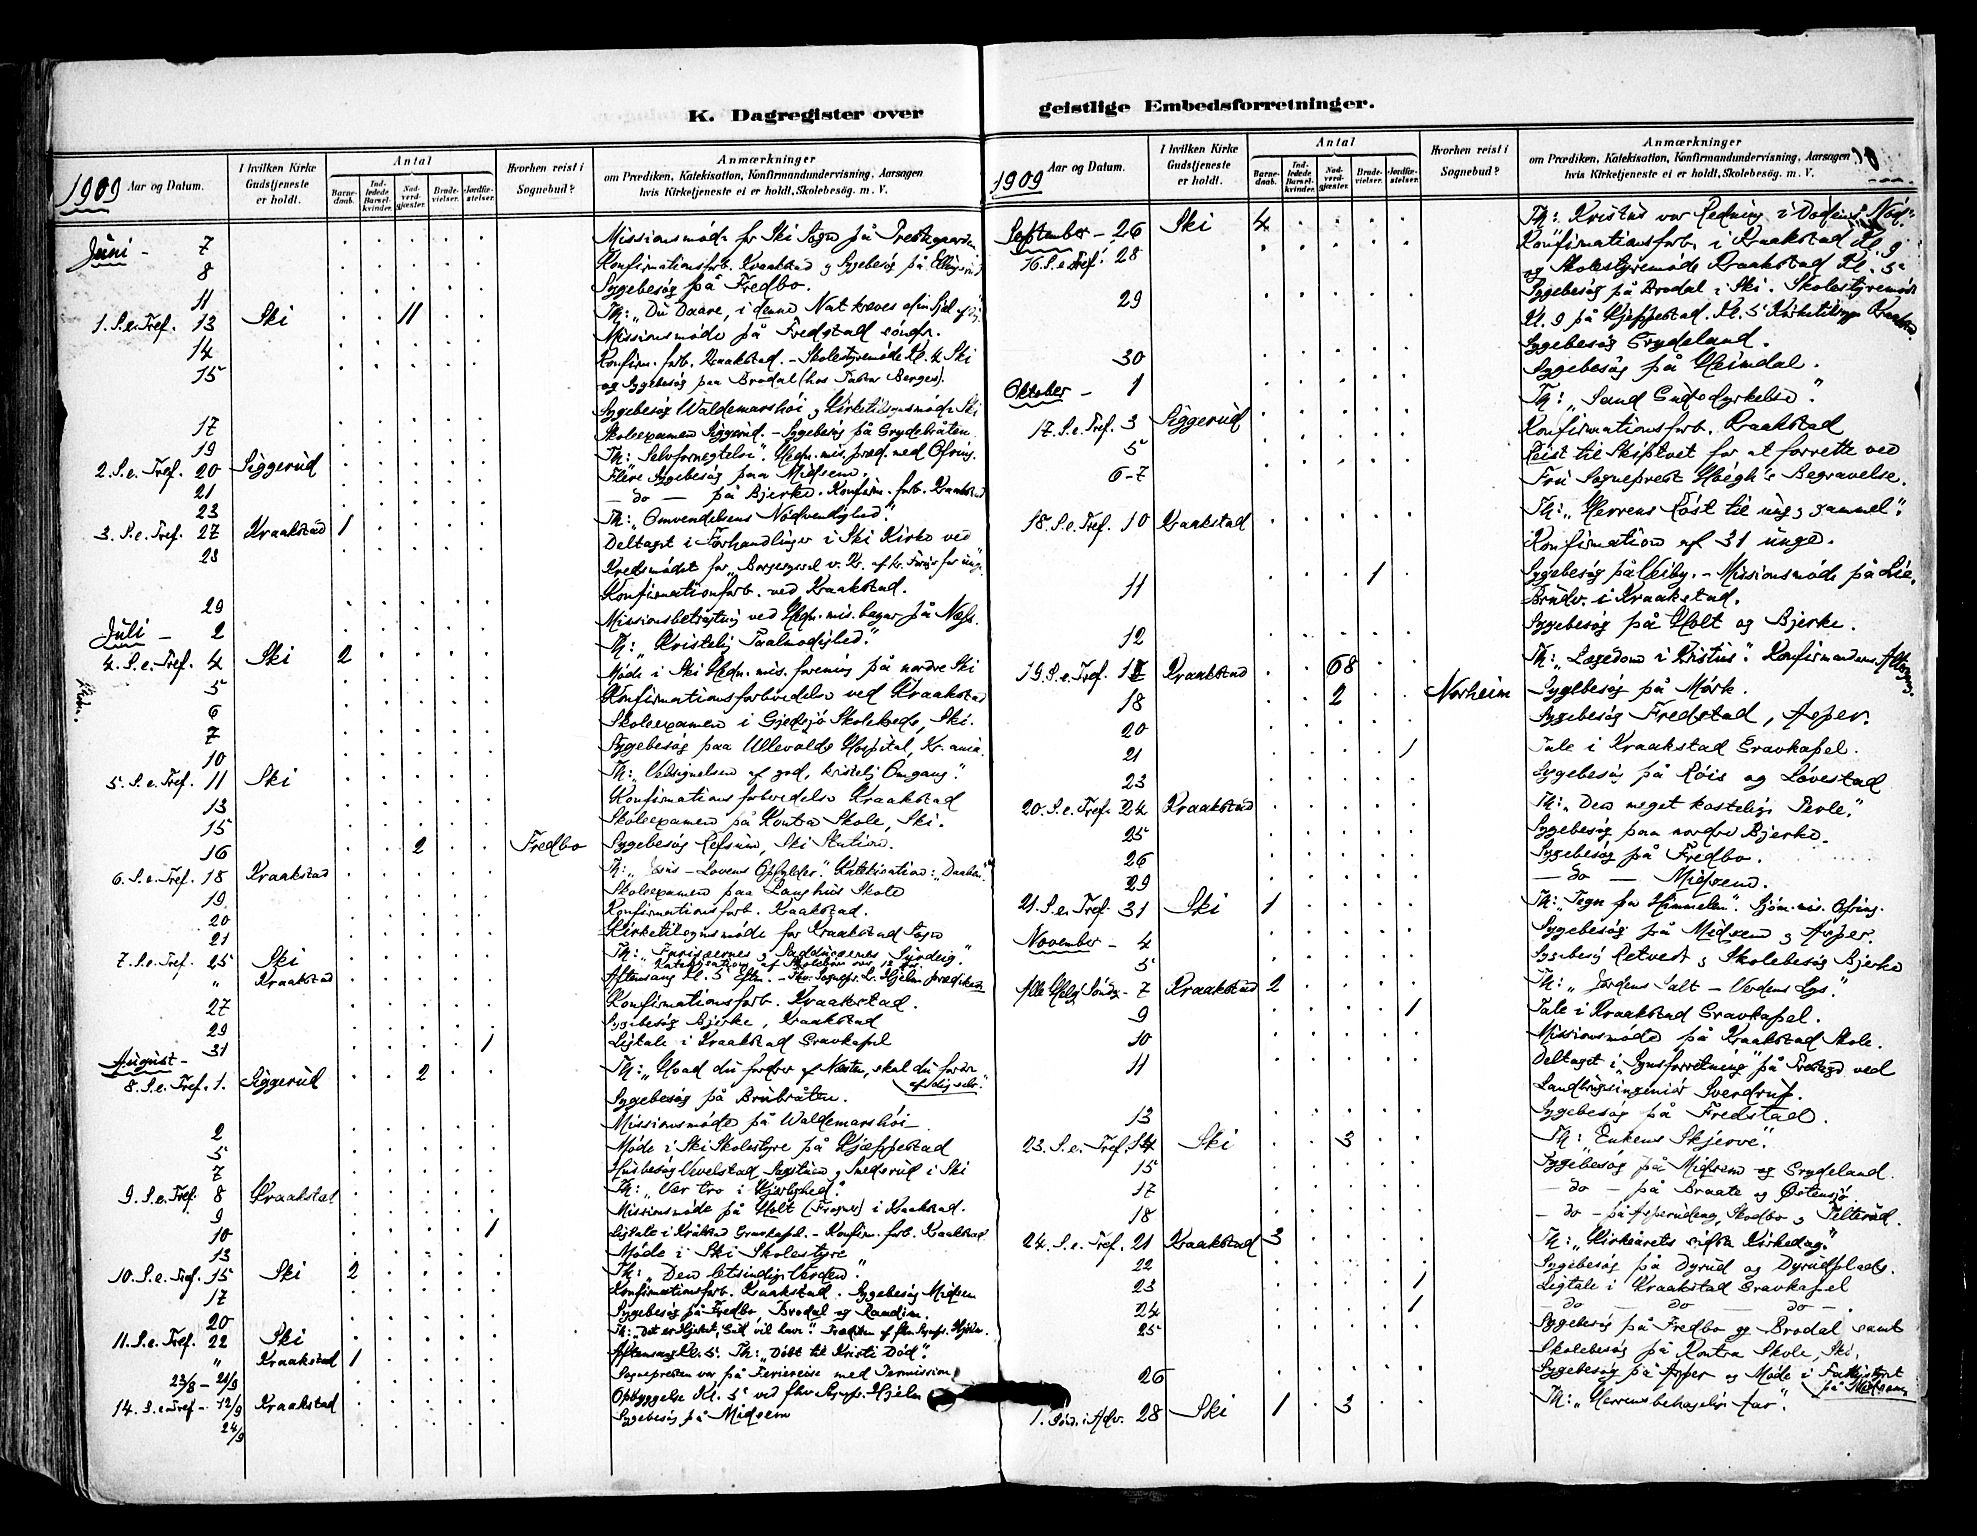 K. Dagregister over
1909 Aar og Datum.
I hvilken Kirke Gudstjeneste er holdt.
Antal
Barnedaab. Indledede Barselkvinder. Nadverdgjæster. Brudevielser. Jordfæstelser.
Hvorhen reist i Sognebud?
Anmærkninger
om Prædiken, Katekisation, Konfirmandundervisning, Aarsagen
hvis Kirketjeneste ei er holdt, Skolebesøg. m. V.
Juni - 7 Missionsmøde for Ski Sogn på Prestegaarden
8 Konfirmationsforb. Kraakstad og Sygebesøg på
11 Sygebesøg på Fredbo.
1. S. e. Tref. 13 Ski 11 Th: "Du Daare, i denne Nat kræves din Sjæl af dig.
14 Missionsmøde på Fredstad søndr.
15 Konfirm. forb. Kraakstad. - Skolestyremøde Kl. 4 Ski
og Sygebesøg paa Brodal (hos Tabea Berges).
17 Sygebesøg Waldemarshøi og Kirketilsynsmøde Ski
19 Skoleexamen Siggerud. - Sygebesøg på Grydebråten.
2. S. e. Tref. 20 Siggerud Th: "Selvfornegtelse". Hedn. mis. præd. med Ofring.
21 Flere Sygebesøg paa Midsem.
23 - do - på Bjerke. Konfirm. forb. Kraakstad
3. S. e. Tref. 27 Kraakstad 1 Th: "Omvendelsens Nødvendighed".
28 Deltaget i Forhandlinger i Ski Kirke ved
Kredsmødet for "Borgersyssel v. Kr. af kr. For. for unge."
29 Konfirmationsforb. ved Kraakstad.
Juli - 2 Missionsbetragtning ved Hedn. mis. bazar på Næss.
4. S. e. Tref. 4 Ski 2 Th: "Kristelig Taalmodighed."
5 Møde i Ski Hedn. mis. forening på nordre Ski
6 Konfirmationsforberedelse ved Kraakstad
7 Skoleexamen i Gjedsjø Skolekreds, Ski.
10 Sygebesøg paa Ullevolds Hospital, Kr.ania.
5. S. e. Tref. 11 Ski Th: "Velsignelsen af god, kristelig Omgang."
13 Konfirmationsforberedelse Kraakstad
15 Skoleexamen på Kontra Skole, Ski.
16 2 Fredbo Sygebesøg Refsum, Ski Station.
6. S. e. Tref. 18 Kraakstad Th: "Jesus - Lovens Opfylder". Katekisation: "Daaben".
19 Skoleexamen paa Langhus Skole
20 Konfirmationsforb. Kraakstad.
21 Kirketilsynsmøde for Kraakstad Sogn
7. S. e. Tref. 25 Ski Th: "Farisæernes og Sadducæernes Syrdeig."
Katekisation af Skolebørn
" Kraakstad Aftensang Kl. 5 Eftm. - Fhv. Sognepr. Hjelm prædikede
27 Konfirmationsforb. Kraakstad.
29 Sygebesøg Bjerke, Kraakstad
31 1 Ligtale i Kraakstad Gravkapel
August -
8. S. e. Tref. 1. Siggerud 2 Th: "Hvad du fordrer af Næsten, skal du fordre
af dig selv."
Sygebesøg på Brubråten.
2 Missionsmøde på Waldemarshøi
5 Møde i Ski Skolestyre på Kjæppestad
7 Husbesøg Vevelstad, Sagstuen og Snedsrud i Ski
9. S. e. Tref. 8 Kraakstad Th: "Vær tro i Kjærlighed."
9 Missionsmøde på Holt (Frogner) i Kraakstad.
10 1 Ligtale i Kråkstad Gravkapel. - Konfirm. forb. Kraakstad
13 Møde i Ski Skolestyre
10. S. e. Tref. 15 Ski 2 Th: "Den letsindige Verden."
17 Konfirmationsforb. Kraakstad. Sygebesøg Midsem
20 Sygebesøg på Fredbo, Brodal og Raadim.
11. S. e. Tref. 22 Ski Th: "Det er Hjertet, Gud vil have". Prædiken af fhv. Sognepr. Hjelm.
" Kraakstad 1 Aftensang Kl. 5. Th: "Døbt til Kristi Død".
23/8 - 21/9 Sognepresten var på Feriereise med Permission
14. S. e. Tref - 12/9 Kraakstad Opbyggelse Kl. 5 ved fhv Sognepr. Hjelm
24/9 Sygebesøg på Midsem
geistlige Embedsforretninger.
10
1909 Aar og Datum.
I hvilken Kirke Gudstjeneste er holdt.
Antal
Barnedaab. Indledede Barselkvinder. Nadverdgjæster. Brudevielser. Jordfæstelser.
Hvorhen reist i Sognebud?
Anmærkninger
om Prædiken, Katekisation, Konfirmandundervisning, Aarsagen
hvis Kirketjeneste ei er holdt, Skolebesøg. m. V.
September - 26 Ski 4 Th: Kristus vor Redning i Dødens Nød.
16. S. e. Tref. 28 Konfirmationsforb. i Kraakstad Kl. 9
og Skolestyremøde Kraakstad Kl. 5
29 Sygebesøg på Brodal i Ski. Skolestyremøde
Kl. 9 på Kjeppestad. Kl. 5 Kirketilsyn Kraakstad.
30 Sygebesøg Grydeland.
Oktober - 1 Sygebesøg på Heimdal.
17. S. e. Tref. 3 Siggerud Th: "Sand Gudsdyrkelse".
5 Konfirmationsforb. Kraakstad
6-7 Reist til Skiptvet for at forrette ved
Fru Sogneprest Høegh's Begravelse.
18. S. e. Tref. 10 Kraakstad Th: "Herrens Røst til ung og gammel".
Konfirmation af 31 unge.
11 1 Sygebesøg på Kiby. - Missionsmøde på Lie.
Brudv. i Kraakstad.
12 Sygebesøg på Holt og Bjerke.
19. S. e. Tref. 17 Kraakstad 68 Th: "Lægedom i Kristus". Konfirmandens Altergang.
18 2 Norheim Sygebesøg på Mørk.
20 Sygebesøg Fredstad, Asper.
21 1 Tale i Kraakstad Gravkapel.
23 Sygebesøg på Røis og Løvestad
20. S. e. Tref. 24 Kraakstad Th: "Den meget kostelige Perle".
25 Sygebesøg paa nordre Bjerke.
26 Sygebesøg på Fredbo.
29 - do - Midsem.
21. S. e. Tref. 31 Ski 1 Th: "Tegn fra Himmelen". Sjøm. mis. Ofring.
November - 4 Sygebesøg på Midsem og Asper.
5 Sygebesøg Retvedt og Skolebesøg Bjerke
Alle Helg. Sønd. - 7 Kraakstad 2 Th: "Jordens Salt - Verdens Lys."
9 1 Tale i Kraakstad Gravkapel.
10 Missionsmøde på Kraakstad Skole.
11 Deltaget i "Synsforretning" på Prestegd ved
Landbrugsingeniør Sverdrup.
13 Sygebesøg på Fredstad.
23. S. e. Tref. 14 Ski 3 Th: "Enkens Skjerve".
15 Sygebesøg på Midsem og Grydeland.
17 - do - på Braate og Østensjø.
18 - do - på Asperudeng, Skodbo og Telterud.
24. S. e. Tref. 21 Kraakstad 3 Th: "Kirkeårets sidste Kirkedag."
22 Sygebesøg på Dyrud og Dyrudplads.
23 1 Ligtale i Kraakstad Gravkapel
24 1 - do - do - do -.
25 Sygebesøg på Fredbo og Brodal samt
Skolebesøg på Kontra Skole, Ski.
26 Sygebesøg på Asper og Møde i Fattigstyret
på Midsem.
1. Sønd. i Adv. 28 Ski 1 3 Th: "Herrens behagelige Aar".